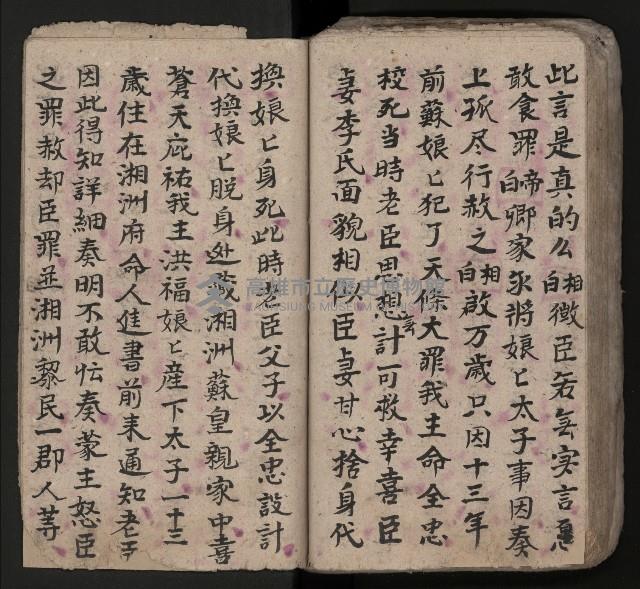 此言是真的么相白徵臣若無实言
敢食罪帝白卿家永將娘匕太子事因奏
上孤尽行赦之相白啟万歲只因十三年
前蘇娘匕犯了天條大罪我主命全忠
校死当時老臣思想計可救幸喜臣
妻李氏面貌相似臣妻甘心捨身代
換娘匕身死此時老臣父子以全忠設計
代換娘匕脫身迯藏湘洲蘇皇親家中喜
蒼天庇祐我主洪福娘匕産下太子一十三
歲住在湘洲府命人進書前来通知老
因此得知詳細奏明不敢忘奏蒙主怒臣
之罪赦却臣罪並湘洲黎民一郡人等
高雄市立歷史博物館
KAOHSIUNG MUSEUM OF HISTORY